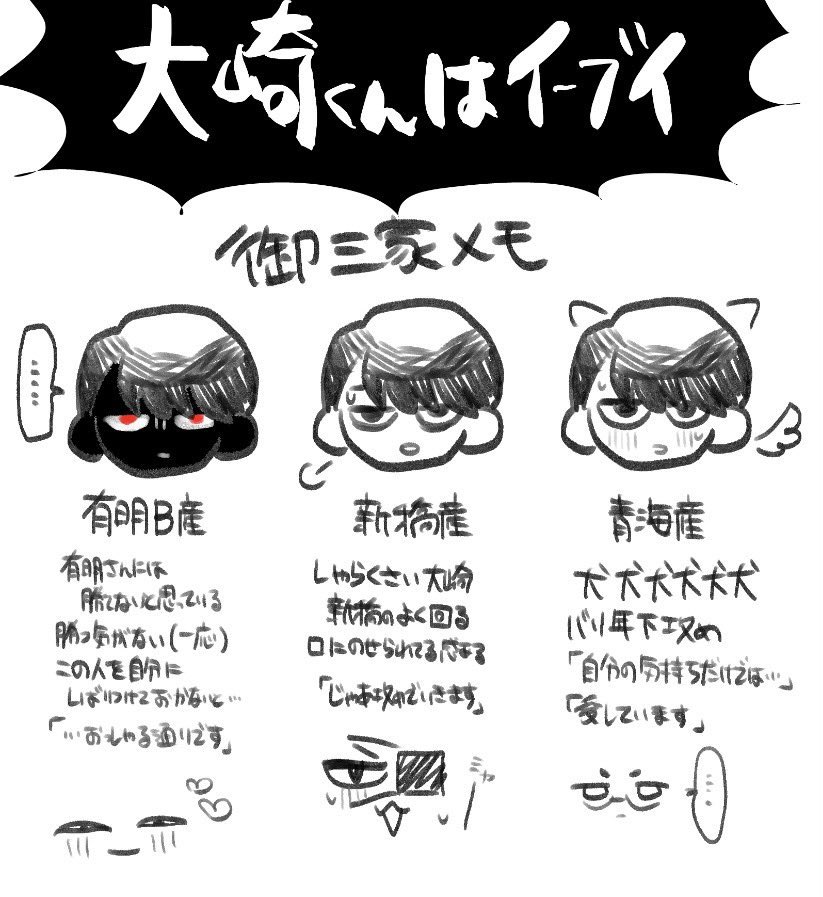 大崎くんはイーブイ
御三家メモ
‥‥‥
有明B産
有明さんには
勝てないと思っている
勝つ気がない(一応)
この人を自分に
しばりつけておかないと…
「…おっしゃる通りです」
新橋産
しゃらくさい大崎
新橋のよく回る
口にのせられてる感ある
「じゃあ攻めでいきます」
ミャ
青海産
犬犬犬犬犬犬
バリ年下攻め
「自分の気持ちだけでは…」
「愛しています」
‥‥